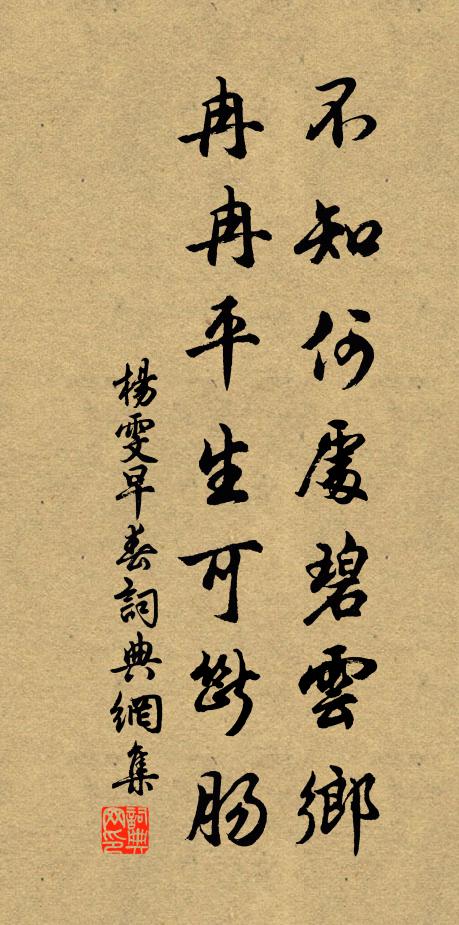 不知何處碧雲鄉
冉冉平生可斷腸
楊雯早春詞典網集
詞典網印